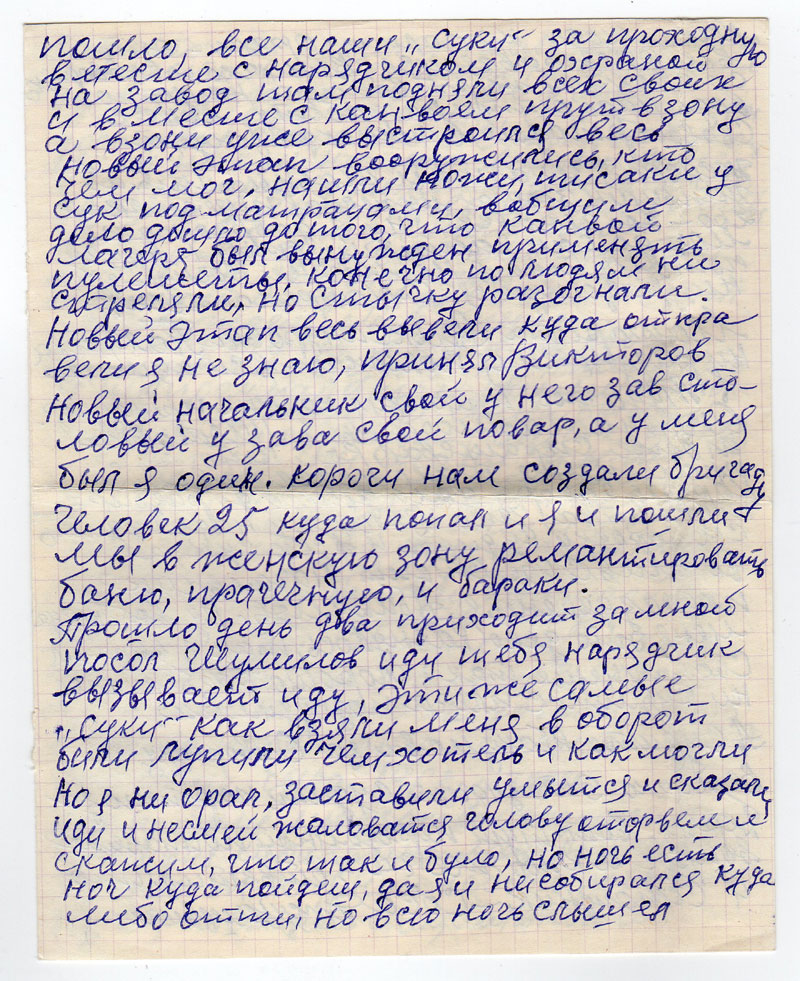 пошло, все наши „суки" за проходную
вместе с нарядчиком и охраной
на завод там подняли всех своих
и вместе с канвоем прут в зону
а взони уже выстроился весь
новый этап вооружились, кто
чем мог, нашли ножи, тисаки у
сук под матрацами, вобщим
дело дошло до того, что канвой
лагеря был вынужден применять
пулеметы. конечно по людям ни
стреляли, но стычку разогнали.
Новый этап весь вывели куда откра
вели я не знаю, принял Викторов
Новый начальник свой у него зав сто-
ловый у зава свой повар, а у меня
был я один. корочи нам создали бригаду
человек 25 куда попал и я и пошли
мы в женскую зону ремантировать
баню, прачечную, и бараки.
Прошло день два приходит за мной
посол Шумилов иди тебя нарядчик
вызывает иду, эти же самые
„суки" как взяли меня в оборот
били лупили чем хотель и как могли
Но я ни орал, заставили умытся и сказали
иди и несмей жаловатся голову оторвем и
скажим, что так и було, но ночь есть
ноч куда пойдеш, да я и несобирался куда
либо отти, но всю ночь слышел